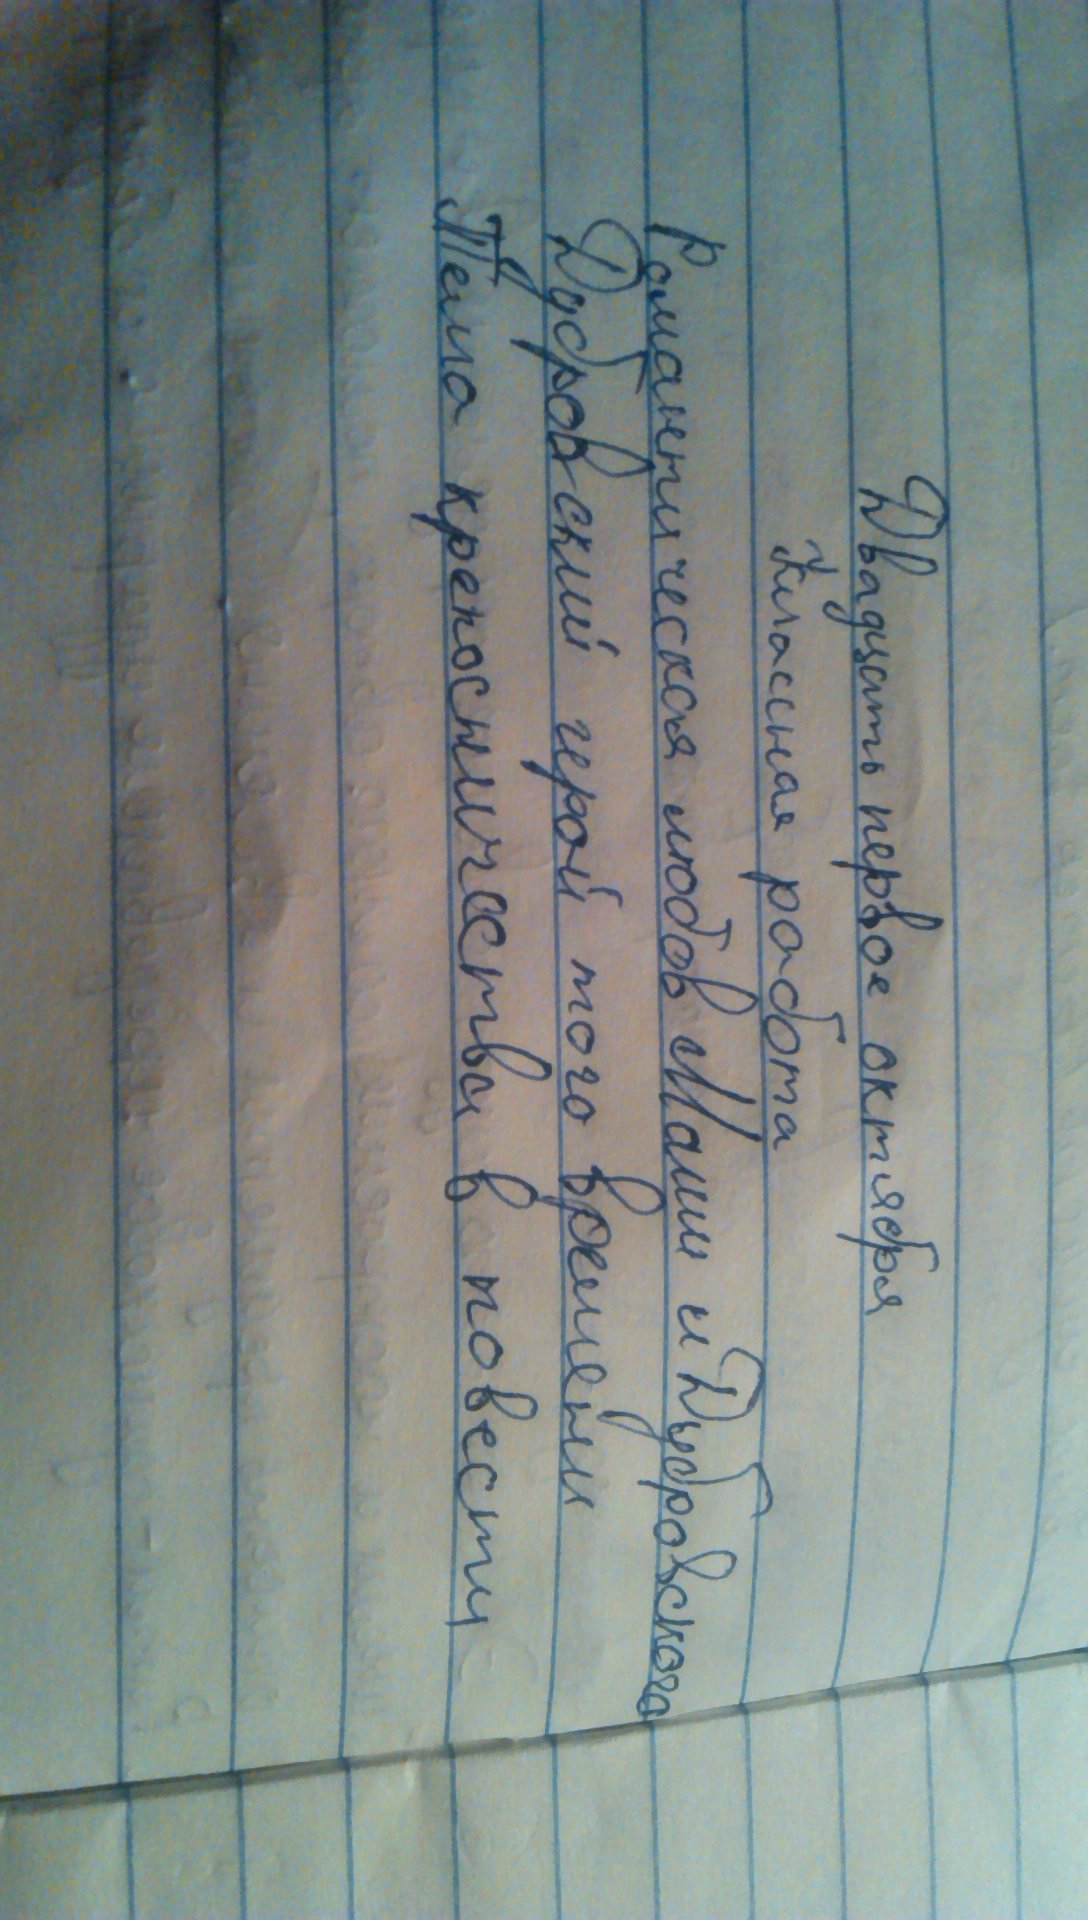 Двадцать первое октября
Классная работа
Романтическая любов Маши и Дубровского
Дубровский герой того времени
Тема крепосничества в повести